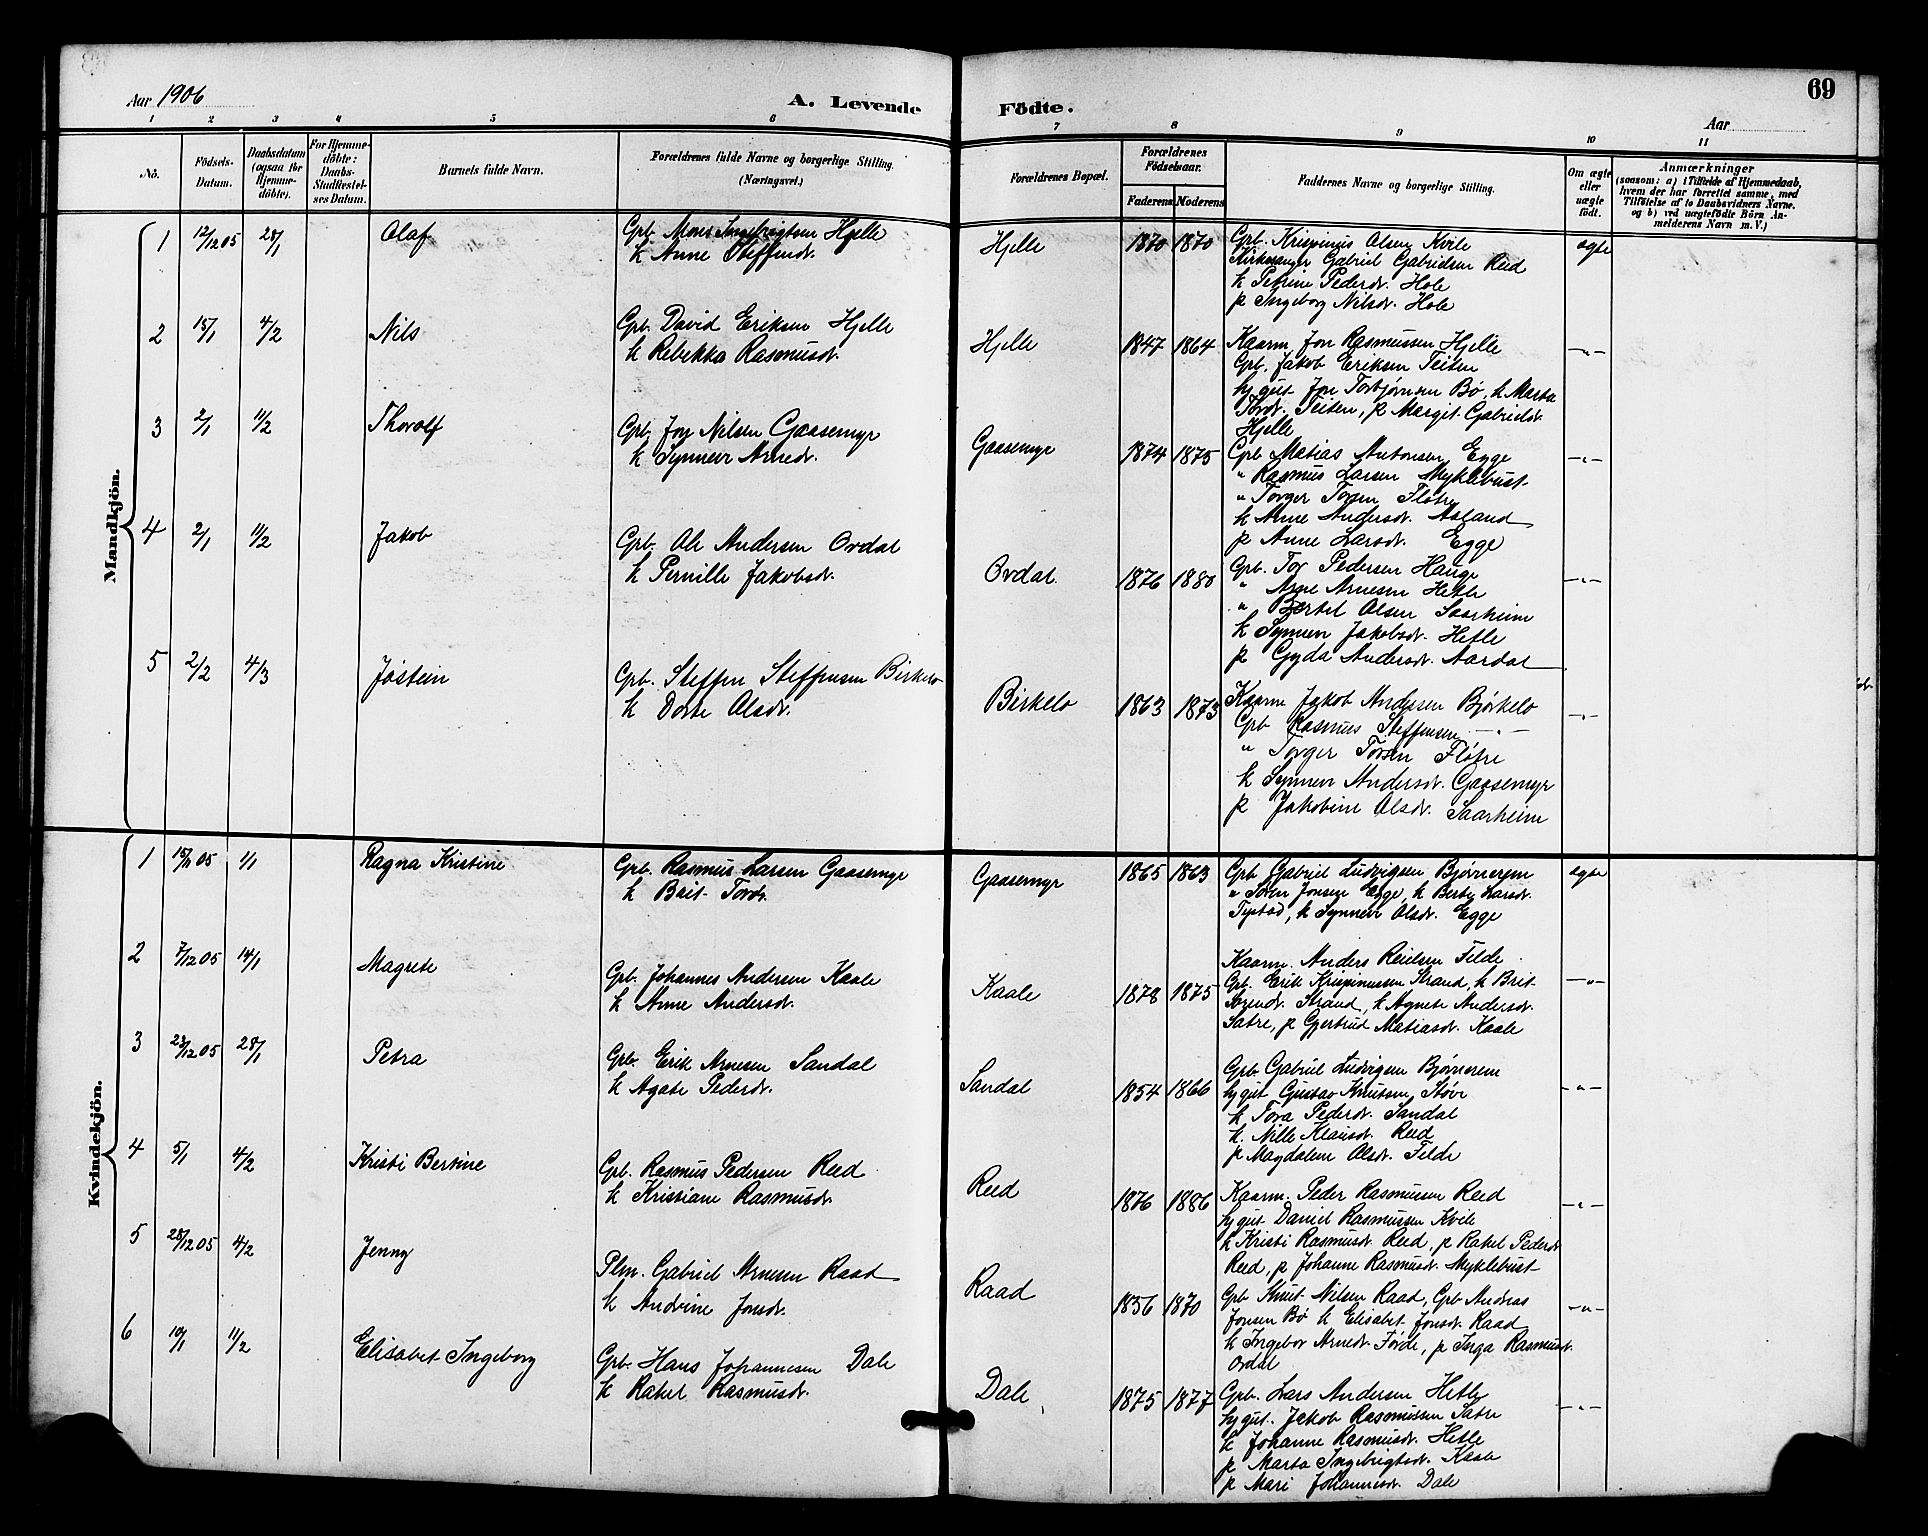 69
Aar 1906
A. Levende
Födte.
Aar
1 2 3 4 5 6 7 8 9 10 11
No.
Födsels-
Datum.
Daabsdatum
(ogsaa for
Hjemme-
döbte).
For Hjemme-
döbte:
Daabs-
Stadfestel-
ses Datum.
Barnets fulde Navn.
Forældrenes fulde Navne og borgerlige Stilling.
(Næringsvei.)
Forældrenes Bopæl.
Forældrenes
Födselsaar.
Faderens Moderens
Faddernes Navne og borgerlige Stilling.
Om ægte
eller
uægte
födt.
Anmærkninger
(saasom: a) i Tilfælde af Hjemmedaab,
hvem der har forrettet samme, med
Tilföielse af to Daabsvidners Navne,
og b) ved uægtefödte Börn An-
melderens Navn m.V.)
Mandkjön.
1 12/12 05 28/1 Olaf
Grb. Mons Ingebrigtsen Hjelle
k Anne Steffensdr.
Hjelle 1870 1870
Grb. Krispinus Olsen Kvile
Kirkesanger Gabriel Gabrielsen Reed
k Petrine Pedersdr. Hole
p Ingeborg Nilsdr. Hole
ægte
2 15/1 4/2 Nils
Grb. David Eriksen Hjelle
k Rebekka Rasmusdr.
Hjelle 1847 1864
Kaarm. Jon Rasmussen Hjelle
Grb. Jakob Eriksen Teiten
Ty gut Jon Torbjørnsen Bø, k Marta
Tordr. Teiten, p Margit Gabrielsdr.
Hjelle
-"-
3 2/1 11/2 Thorolf
Grb. Jon Nilsen Gaasemyr
k Synneve Arnedr.
Gaasemyr 1874 1875
Grb Matias Antonsen Egge
" Rasmus Larsen Myklebust
" Torger Torsen Fløtre
k Anne Andersdr. Asland
p Anne Larsdr. Egge
-"-
4 2/1 11/2 Jakob
Grb. Ole Andersen Ordal
k Pernille Jakobsdr.
Ordal. 1876 1880
Grb. Tor Pedersen Hauge
" Arne Arnesen Hetle
" Bertel Olsen Saarheim
k Synneve Jakobsdr. Hetle
p Gyda Andersdr. Aardal
-"-
5 2/2 4/3 Jøstein
Grb. Steffen Steffensen Birkelo
k Dorte Olsdr.
Birkelo 1863 1873
Kaarm Jakob Andersen Bjørkelo
Grb Rasmus Steffensen -"-
" Torger Torsen Fløtre
k Synneve Andersdr. Gaasemyr
p Jakobine Olsdr. Saarheim
-"-
Kvindekjön.
1 15/11 05 1/1 Ragna Kristine
Grb. Rasmus Larsen Gaasemyr
k Brit Tordr.
Gaasemyr 1865 1863
Grb Gabriel Ludvigsen Bjørnerem
" Søren Jonsen Egge, k Berte Larsdr.
k Synneve Olsdr. Egge
ægte
2 7/12 05 14/1 Magrete
Grb. Johannes Andersen Kaale
k Anne Andersdr.
Kaale 1878 1875
Kaarm. Anders Reielsen Felde
Grb. Erik Krispinussen Strand, k Brit
Sørensdr. Strand, k Agnete Andersdr.
Sætre, p Gjertrud Matiasdr. Kaale
-"-
3 23/12 05 28/1 Petra
Grb. Erik Arnesen Sandal
k Agate Pedersdr.
Sandal 1854 1866
Grb. Gabriel Ludvigsen Bjørnerem
Ty gut Gustav Knutsen Støve
k Tora Pedersdr. Sandal
k. Nille Klausdr. Reed
p Magdalene Olsdr. Felde
-"-
4 5/1 4/2 Kristi Bertine
Grb. Rasmus Pedersen Reed
k Kristiane Rasmusdr.
Reed 1876 1886
Kaarm. Peder Rasmussen Reed
Ty gut Daniel Rasmussen Kvile
k Kristi Rasmusdr. Reed, p Rakel Pedersdr.
Reed, p Johanne Rasmusdr. Myklebust
-"-
5 28/12 05 4/2 Jenny
Plm. Gabriel Arnesen Raad
k Andrine Jonsdr.
Raad 1856 1870
Grb Knut Nilsen Raad, Grb Andreas
Jonsen Bø k Elisabet Jonsdr. Raad
k Ingebor Arnedr. Førde, p Inga Rasmusdr.
Ordal
-"-
6 10/1 11/2 Elisabet Ingeborg
Grb. Hans Johannesen Dale
k Rakel Rasmusdr.
Dale 1875 1877
Grb. Lars Andersen Hetle
Ty gut. Jakob Rasmussen Sætre
k Johanne Rasmusdr. Hetle
p Marta Ingebrigtsdr. Kaale
p Mari Johannesdr. Dale
-"-